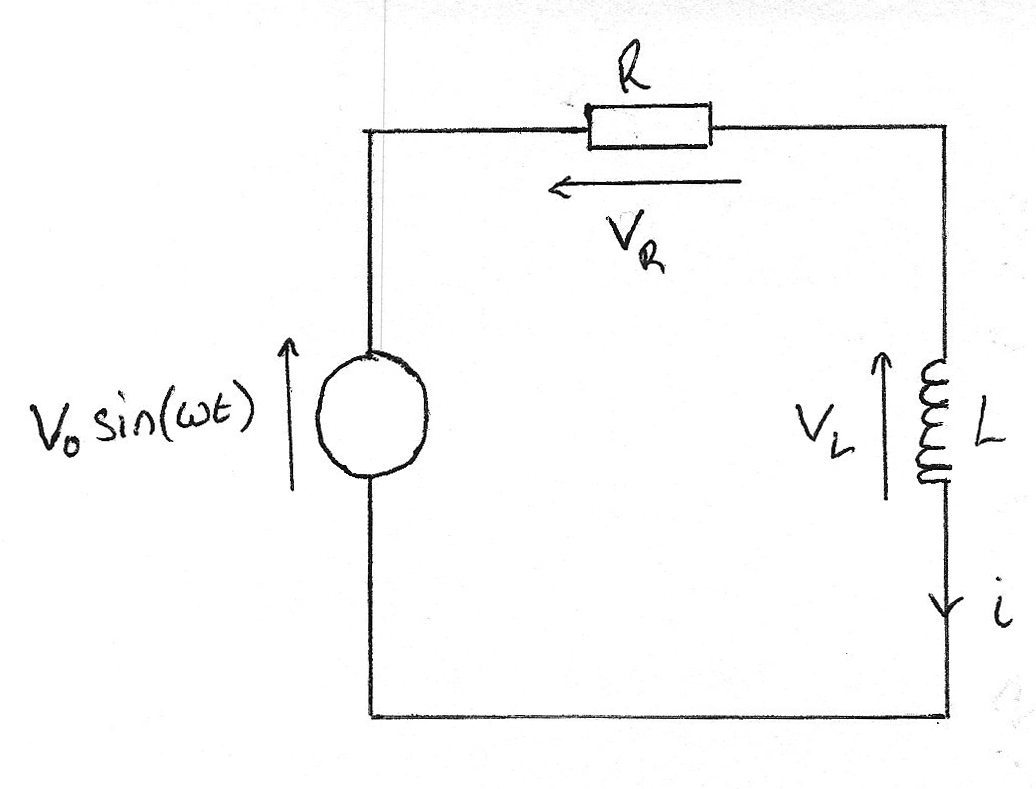 R
V_R
V₀ sin(ωt)
V_L
L
i